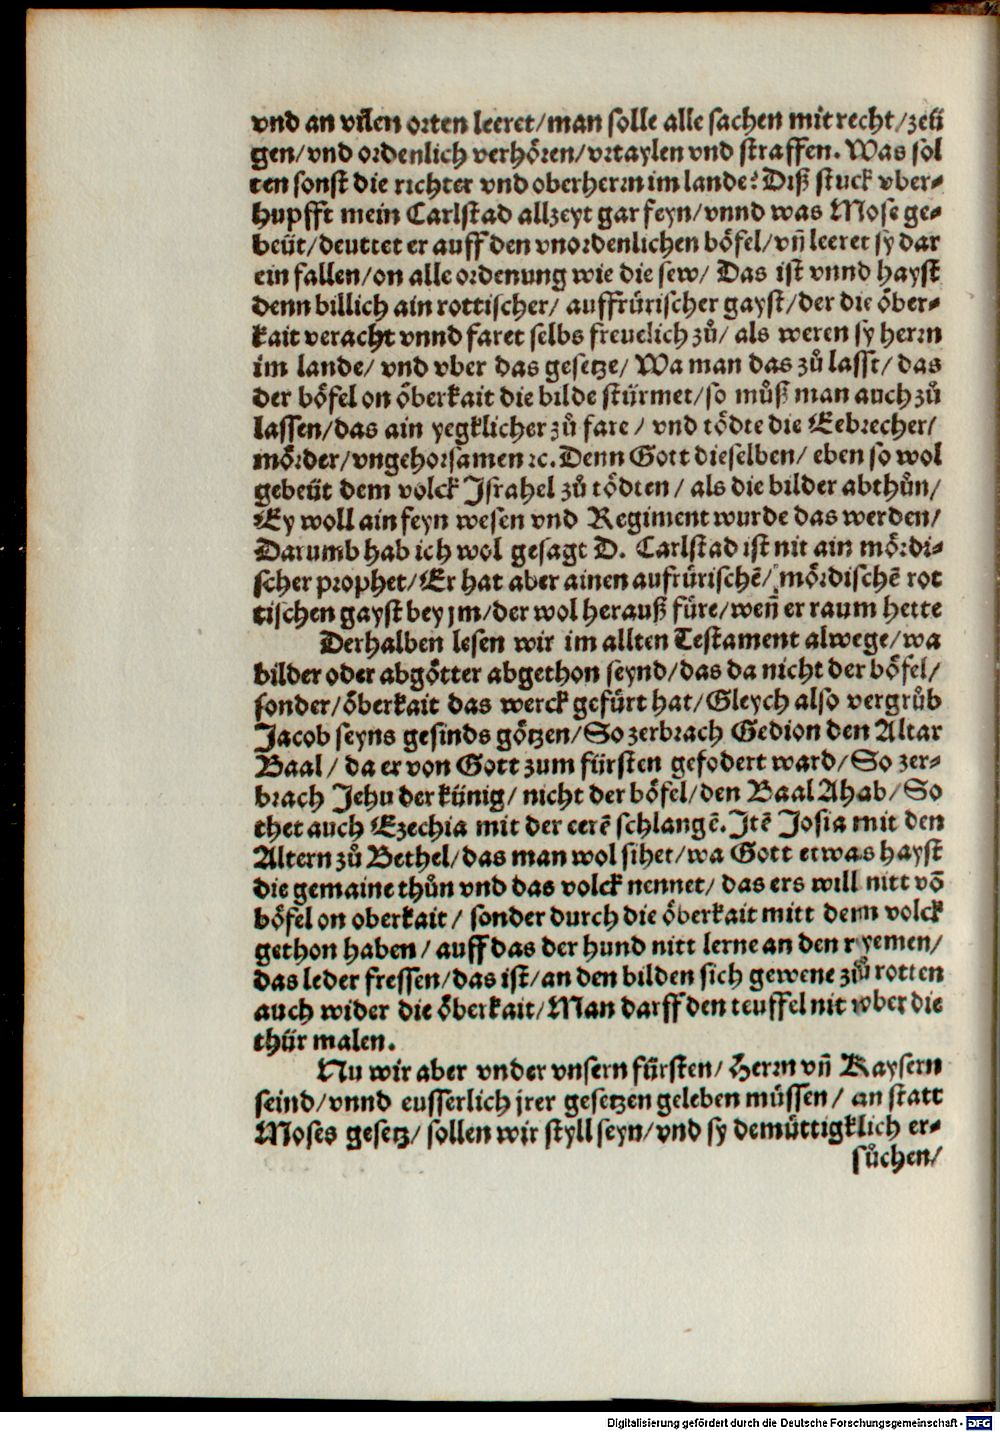 vnd an vilen orten leeret/man solle alle sachen mit recht/zeü
gen/vnd ordenlich verhören/vrtaylen vnd straffen. Was sol
ten sonst die richter vnd oberherrn im lande? Diß stuck vber-
hupfft mein Carlstad allzeyt gar feyn/vnnd was Mose ge-
beüt/deuttet er auff den vnordenlichen böfel/vñ leeret sy dar
ein fallen/on alle ordenung wie die sew/ Das ist vnnd hayst
denn billich ain rottischer/ auffrürischer gayst/der die öber-
kait veracht vnnd faret selbs freuelich zů/ als weren sy herrn
im lande/ vnd vber das gesetze/ Wa man das zů lasst/ das
der böfel on öberkait die bilde stürmet/so můß man auch zů
lassen/das ain yegklicher zů fare / vnd tödte die Eebrecher/
mörder/vngehorsamen ꝛc. Denn Gott dieselben/ eben so wol
gebeüt dem volck Jsrahel zů tödten / als die bilder abthůn/
Ey woll ain feyn wesen vnd Regiment wurde das werden/
Darumb hab ich wol gesagt D. Carlstad ist nit ain mördi-
scher prophet/Er hat aber ainen aufrürischē/ mördischē rot
tischen gayst bey jm/der wol herauß füre/weñ er raum hette
Derhalben lesen wir im allten Testament alwege/wa
bilder oder abgötter abgethon seynd/das da nicht der böfel/
sonder/öberkait das werck gefürt hat/Gleych also vergrůb
Jacob seyns gesinds götzen/So zerbrach Gedion den Altar
Baal / da er von Gott zum fürsten gefodert ward/So zer-
brach Jehu der künig/ nicht der böfel/den Baal Ahab/So
thet auch Ezechia mit der eerē schlangē. Jtē Josia mit den
Altern zů Bethel/das man wol sihet/wa Gott etwas hayst
die gemaine thůn vnd das volck nennet/ das ers will nitt vō
böfel on oberkait / sonder durch die öberkait mitt dem volck
gethon haben / auff das der hund nitt lerne an den ryemen/
das leder fressen/das ist/an den bilden sich gewene zů rotten
auch wider die öberkait/Man darff den teuffel nit vber die
thür malen.
Nu wir aber vnder vnsern fürsten/ Herrn vñ Kaysern
seind/vnnd eusserlich jrer gesetzen geleben müssen/ an statt
Moses gesetz/ sollen wir styll seyn/vnd sy demüttigklich er-
sůchen/
Digitalisierung gefördert durch die Deutsche Forschungsgemeinschaft - DFG